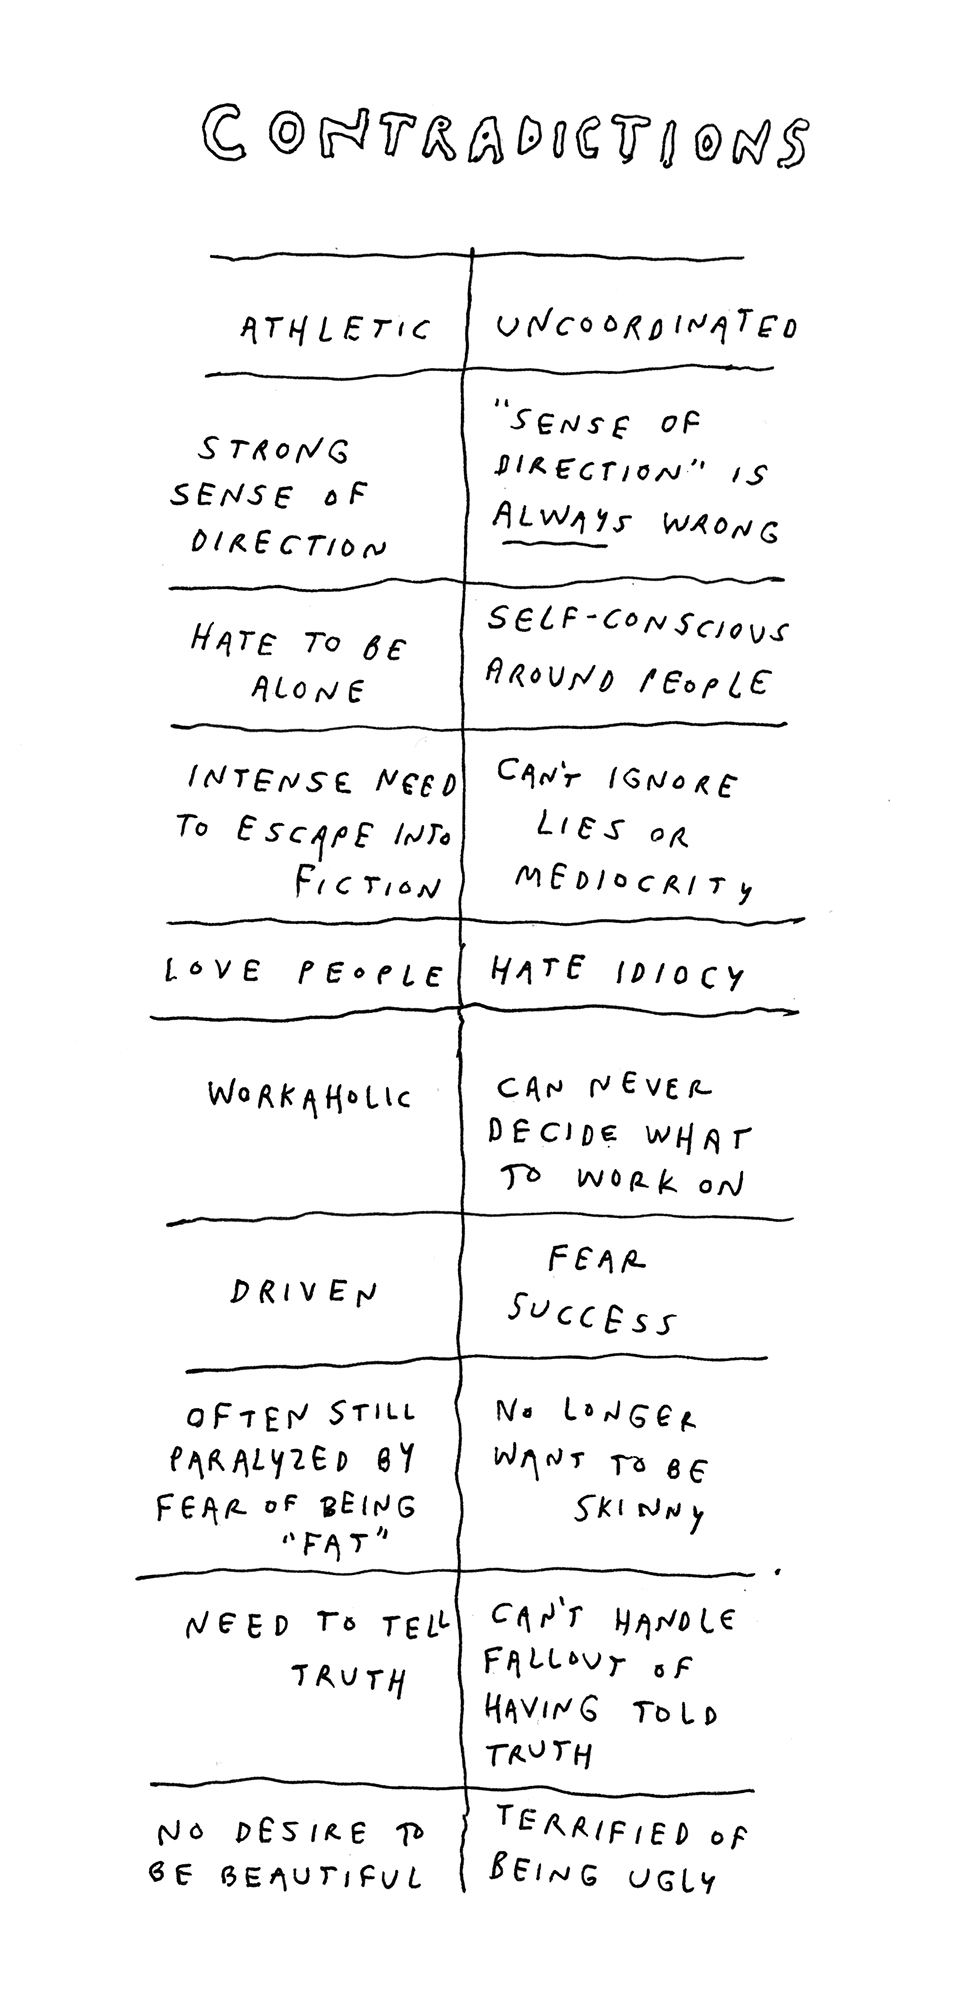 CONTRADICTIONS
ATHLETIC
UNCOORDINATED
STRONG
SENSE OF
DIRECTION
"SENSE OF
DIRECTION" IS
ALWAYS WRONG
HATE TO BE
ALONE
SELF-CONSCIOUS
AROUND PEOPLE
INTENSE NEED
TO ESCAPE INTO
FICTION
CAN'T IGNORE
LIES OR
MEDIOCRITY
LOVE PEOPLE
HATE IDIOCY
WORKAHOLIC
CAN NEVER
DECIDE WHAT
TO WORK ON
DRIVEN
FEAR
SUCCESS
OFTEN STILL
PARALYZED BY
FEAR OF BEING
"FAT"
NO LONGER
WANT TO BE
SKINNY
NEED TO TELL
TRUTH
CAN'T HANDLE
FALLOUT OF
HAVING TOLD
TRUTH
NO DESIRE TO
BE BEAUTIFUL
TERRIFIED OF
BEING UGLY